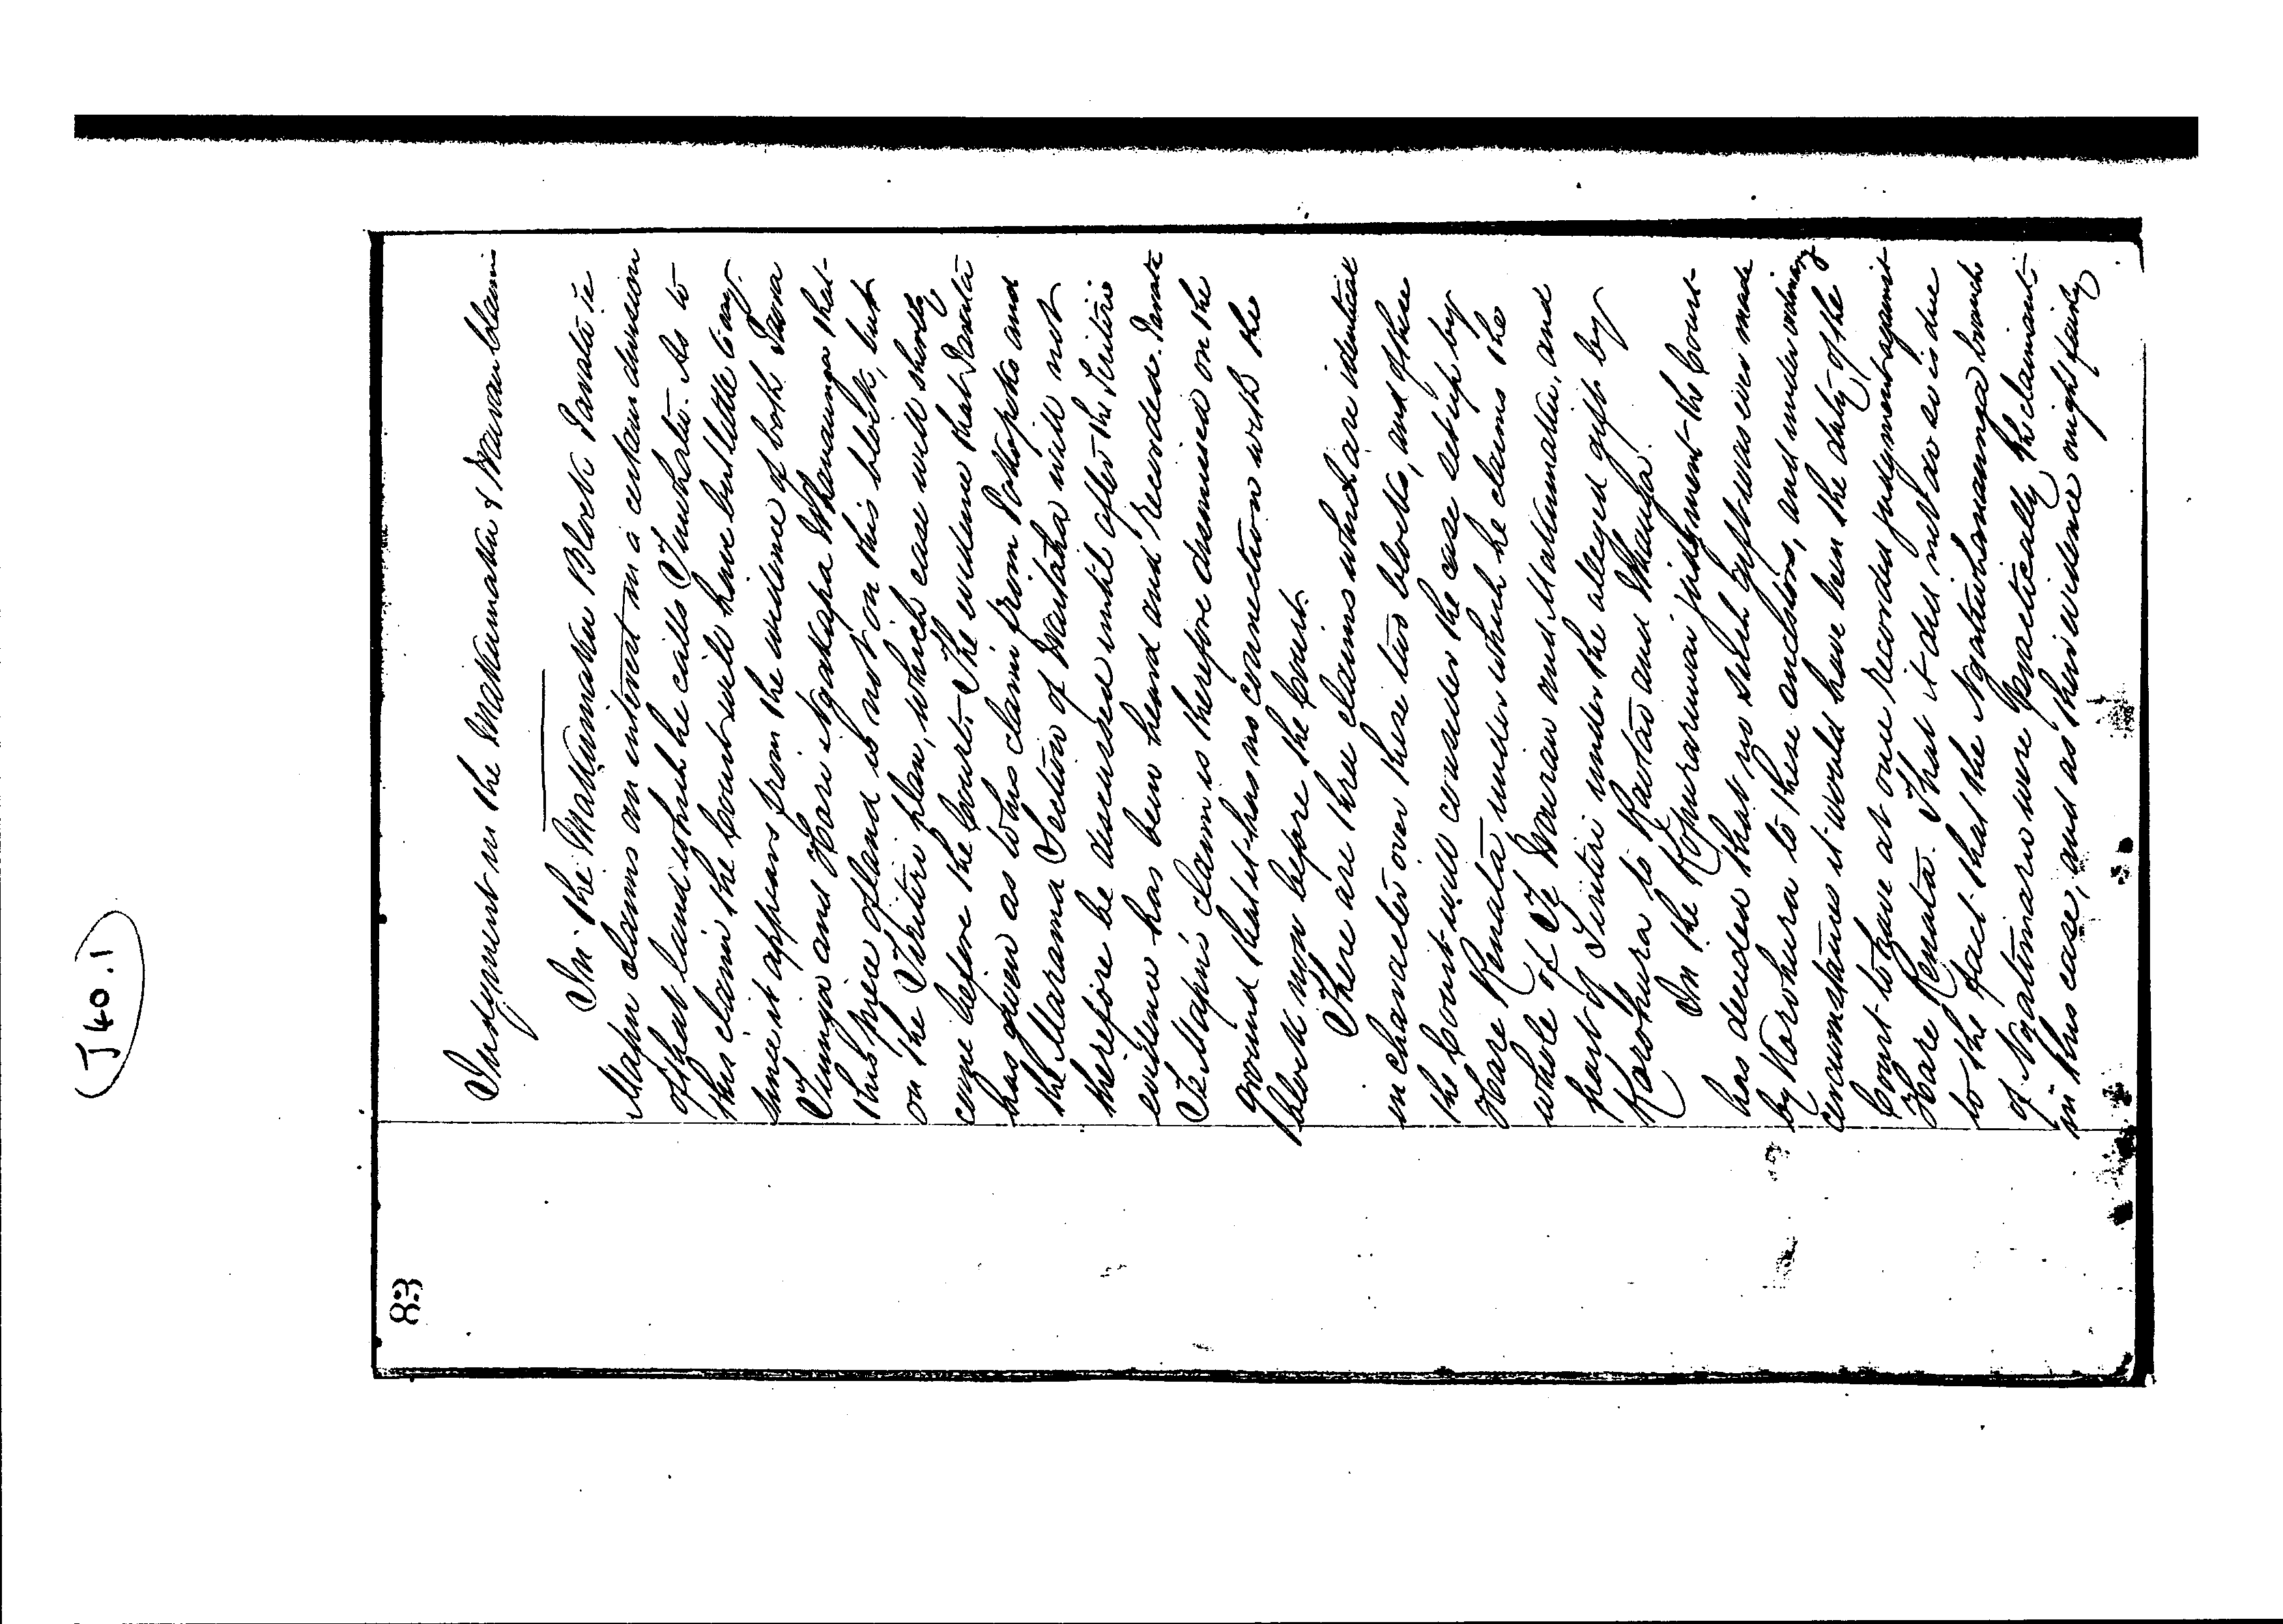 (J 40.1)
83
Judgment in the Matkumatu & Mauran blami
In the Block Tanata te
Mapu claims an interest in a certain division
of that land which he calls As to
this claim the Court will have but little to say
since it appears from the evidence of both Tawa
and Hari Ngakapa Whanaunga that
this piece of land is not on this block, but
on the Titiri plan, which case will shortly
come before the Court. The evidence that
has given as to his claim from and
the Marama Section of Waitaha will not
therefore be discussed until after the
evidence has been heard and recorded.
Te Mapu's claim is therefore dismissed on the
ground that it has no connection with the
block now before the Court.
There are three claims which are identical
in character over these two blocks, and of these
the Court will consider the case set up by
Hare Renata under which he claims the
whole of Te and and
part of under the alleged gift by
Korohura to and
In the judgment the Court
has decided that no such gift was ever made
by Korohura to these ancestors, and under ordinary
circumstances it would have been the duty of the
Court to have at once recorded judgment against
Hare Renata. That it did not do so is due
to the fact that the Ngatiwhanaunga branch
of were practically the claimants
in this case, and as their evidence might fairly